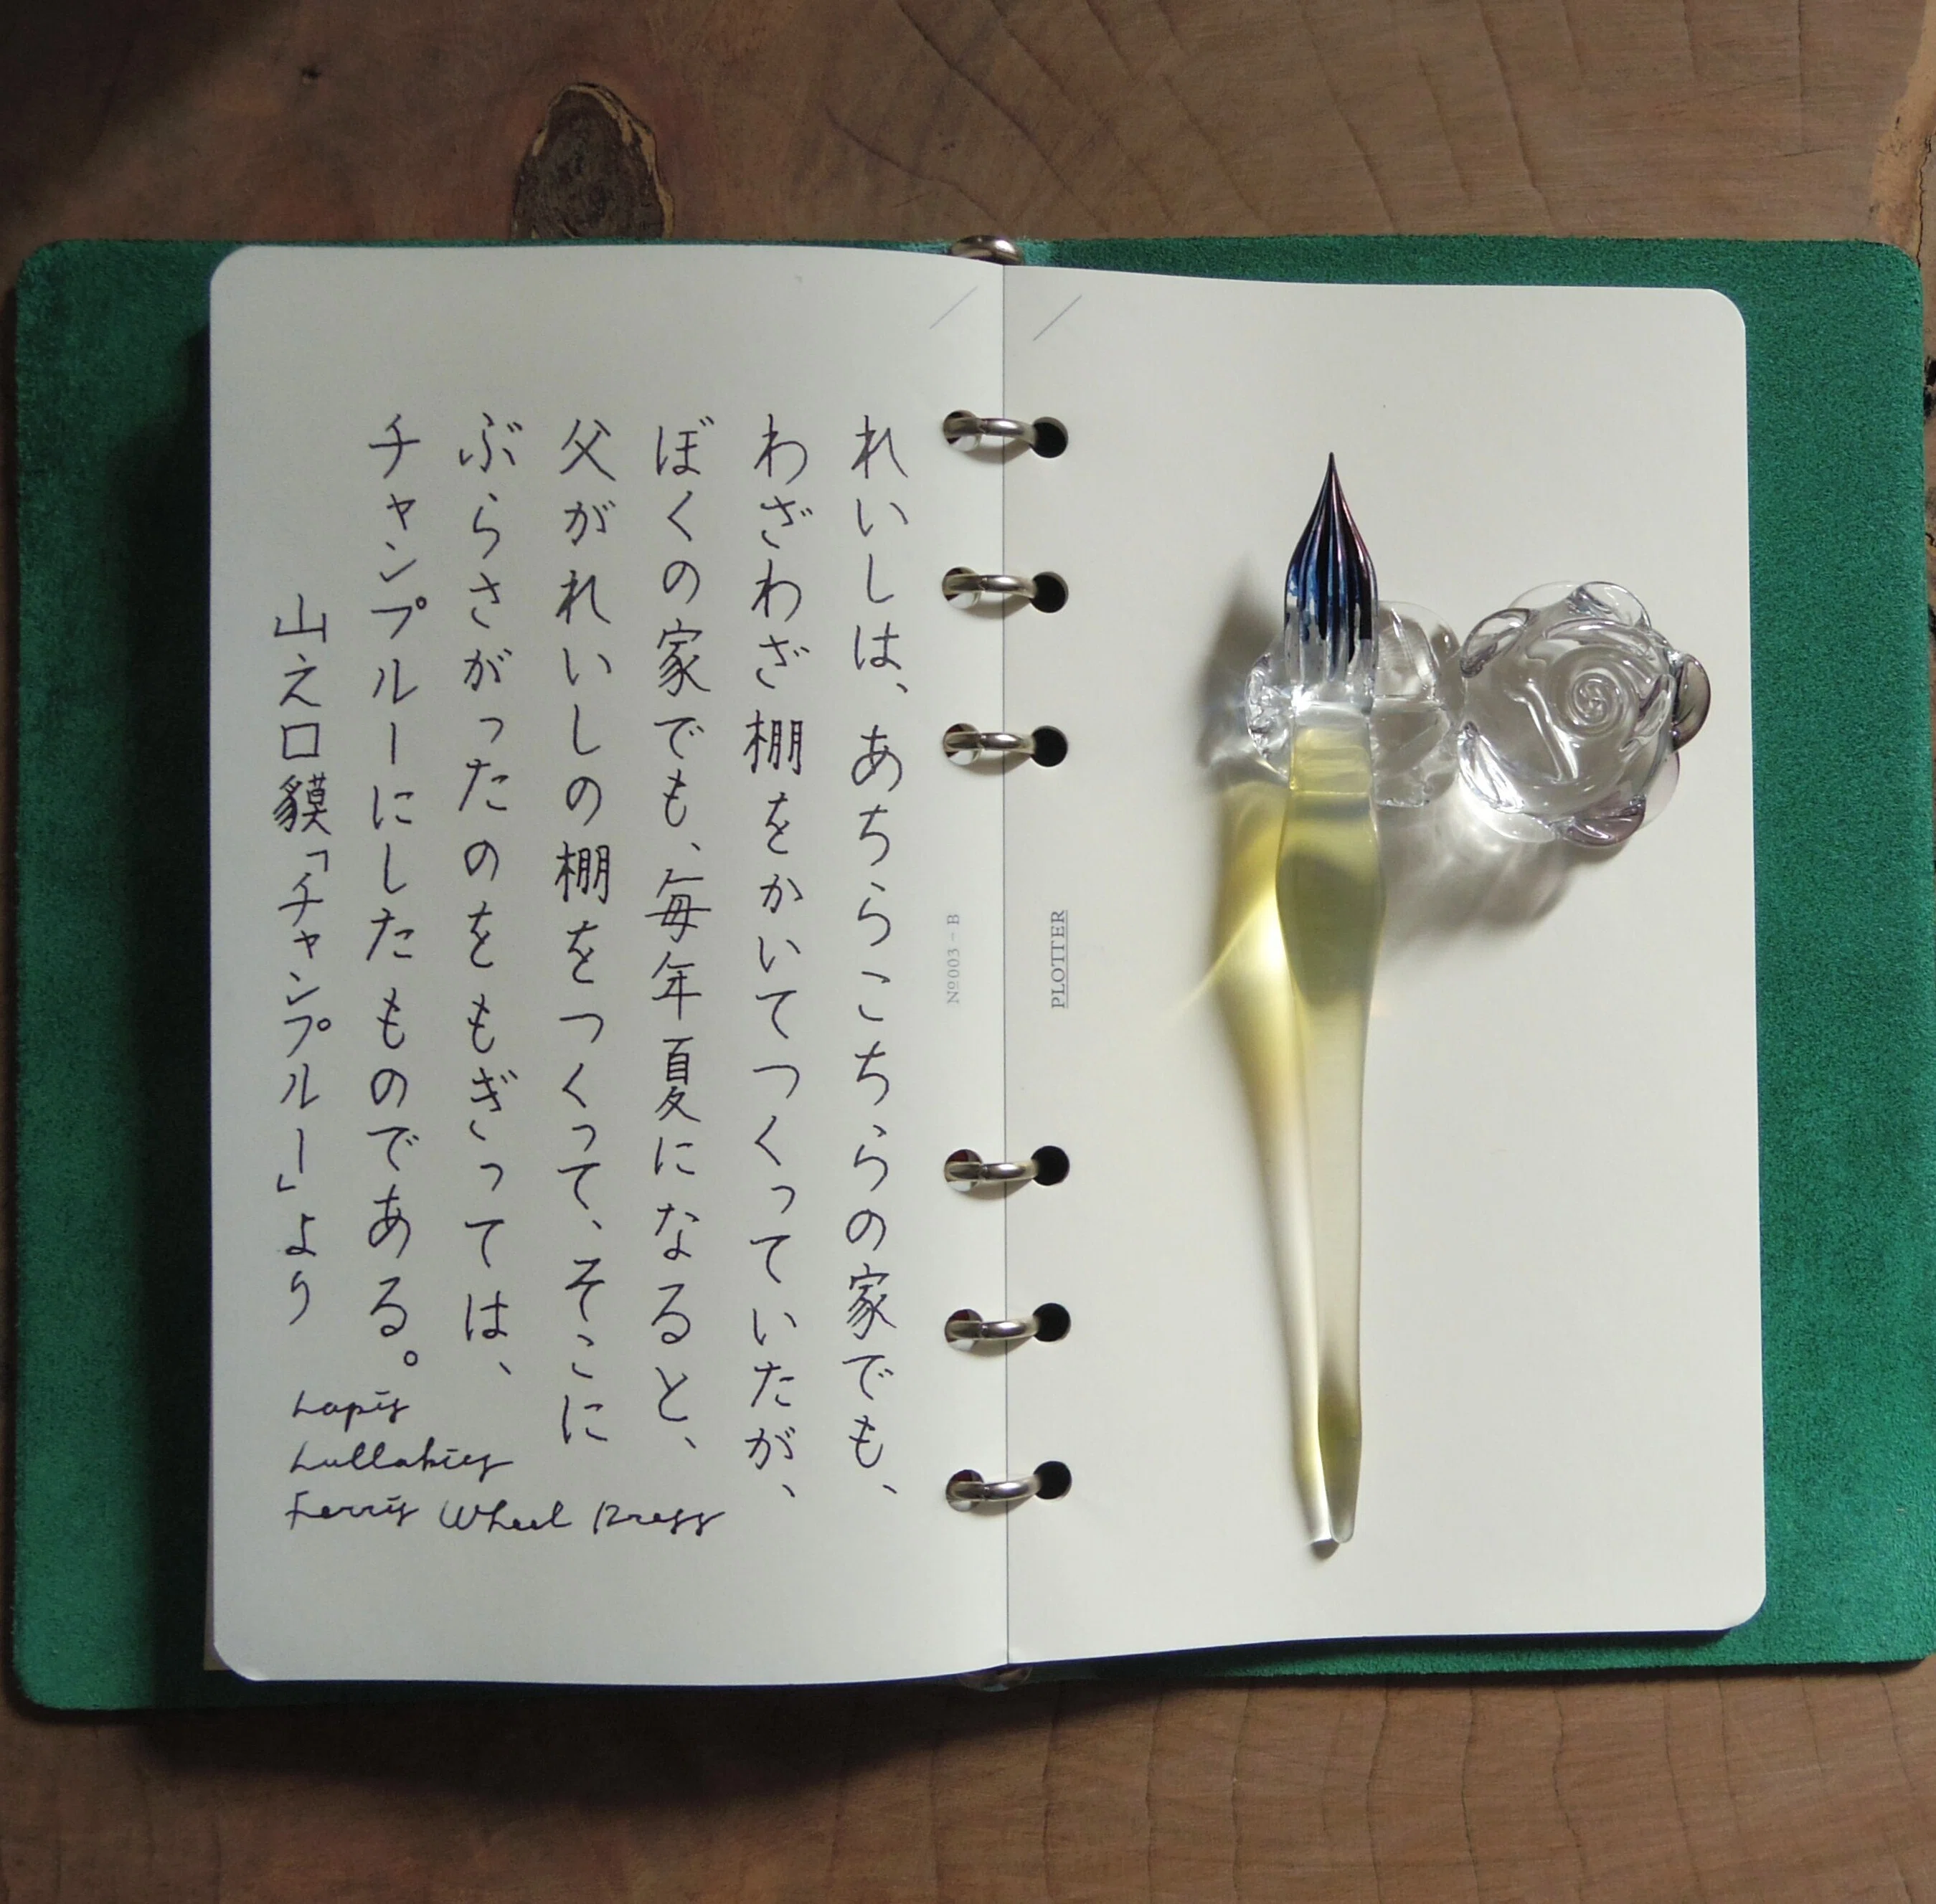 れいしは、あちらこちらの家でも、
わざわざ棚をかいてつくっていたが、
ぼくの家でも、毎年夏になると、
父がれいしの棚をつくって、そこに
ぶらさがったのをもぎっては、
チャンプルーにしたものである。
山之口貘「チャンプルー」より
Lapis
Lullabies
Ferris Wheel Press
Nº003 – B
PLOTTER